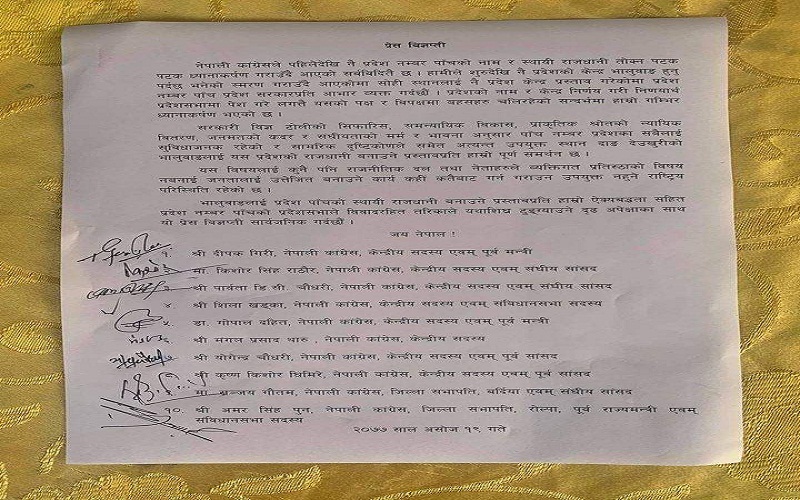 प्रेस विज्ञप्ती
नेपाली कांग्रेसले पहिलेदेखि नै प्रदेश नम्बर पाँचको नाम र स्थायी राजधानी तोक्न पटक
पटक ध्यानाकर्षण गराउँदै आएको सर्वविदितै छ । हामीले शुरुदेखि नै प्रदेशको केन्द्र भालुवाङ हुनु
पर्दछ भनेको स्मरण गराउदै आएकोमा सोही स्थानलाई नै प्रदेश केन्द्र प्रस्ताव गरेकोमा प्रदेश
नम्बर पाँच प्रदेश सरकारप्रति आभार व्यक्त गर्दछौं । प्रदेशको नाम र केन्द्र निर्णय गरी निणयार्थ
प्रदेशसभामा पेश गरे लगत्तै यसको पक्ष र विपक्षमा बहसहरु चलिरहेको सन्दर्भमा हाम्रो गम्भिर
ध्यानाकर्षण भएको छ ।
सरकारी विज्ञ टोलीको सिफारिस, समन्यायिक विकास, प्राकृतिक श्रोतको न्यायिक
वितरण, जनमतको कदर र संघीयताको मर्म र भावना अनुसार पाँच नम्बर प्रदेशका सबैलाई
सुविधाजनक रहेको र सामरिक दृष्टिकोणले समेत अत्यन्त उपयुक्त स्थान दाङ देउखुरीको
भालुवाङलाई यस प्रदेशको राजधानी बनाउने प्रस्तावप्रति हाम्रो पूर्ण समर्थन छ ।
यस विषयलाई कुनै पनि राजनीतिक दल तथा नेताहरुले व्यक्तिगत प्रतिस्ठाको विषय
नबनाई जनतालाई उत्तेजित बनाउने कार्य कही कतैबाट गर्न गराउन उपयुक्त नहुने राष्ट्रिय
परिस्थिति रहेको छ ।
भालुवाङलाई प्रदेश पाँचको स्थायी राजधानी बनाउने प्रस्तावप्रति हाम्रो ऐक्यबद्धता सहित
प्रदेश नम्बर पाँचको प्रदेशसभाले विवादरहित तरिकाले यथाशिघ्र टुङ्ग्याउने दृढ अपेक्षाका साथ
यो प्रेस विज्ञप्ती सार्वजनिक गर्दछौं ।
जय नेपाल !
१. श्री दीपक गिरी, नेपाली कांग्रेस, केन्द्रीय सदस्य एवम् पूर्व मन्त्री
मा. किशोर सिंह राठौर, नेपाली कांग्रेस, केन्द्रीय सदस्य एवम् संघीय सांसद
श्री पार्वता डि.सी. चौधरी, नेपाली कांग्रेस, केन्द्रीय सदस्य एवम् संघीय सांसद
४. श्री शिला खड्का, नेपाली कांग्रेस, केन्द्रीय सदस्य एवम् संविधानसभा सदस्य
५. डा. गोपाल दहित, नेपाली कांग्रेस, केन्द्रीय सदस्य एवम् पूर्व मन्त्री
श्री मंगल प्रसाद थारु , नेपाली कांग्रेस, केन्द्रीय सदस्य
श्री योगेन्द्र चौधरी, नेपाली कांग्रेस, केन्द्रीय सदस्य एवम् पूर्व सांसद
श्री कृष्ण किशोर घिमिरे, नेपाली कांग्रेस, केन्द्रीय सदस्य एवम् पूर्व सांसद
मा. सञ्जय गौतम, नेपाली कांग्रेस, जिल्ला सभापति, बर्दिया एवम् संघीय सांसद
१०. श्री अमर सिंह पुन, नेपाली कांग्रेस, जिल्ला सभापति, रोल्पा, पूर्व राज्यमन्त्री एवम्
संविधानसभा सदस्य
२०७७ साल असोज १९ गते